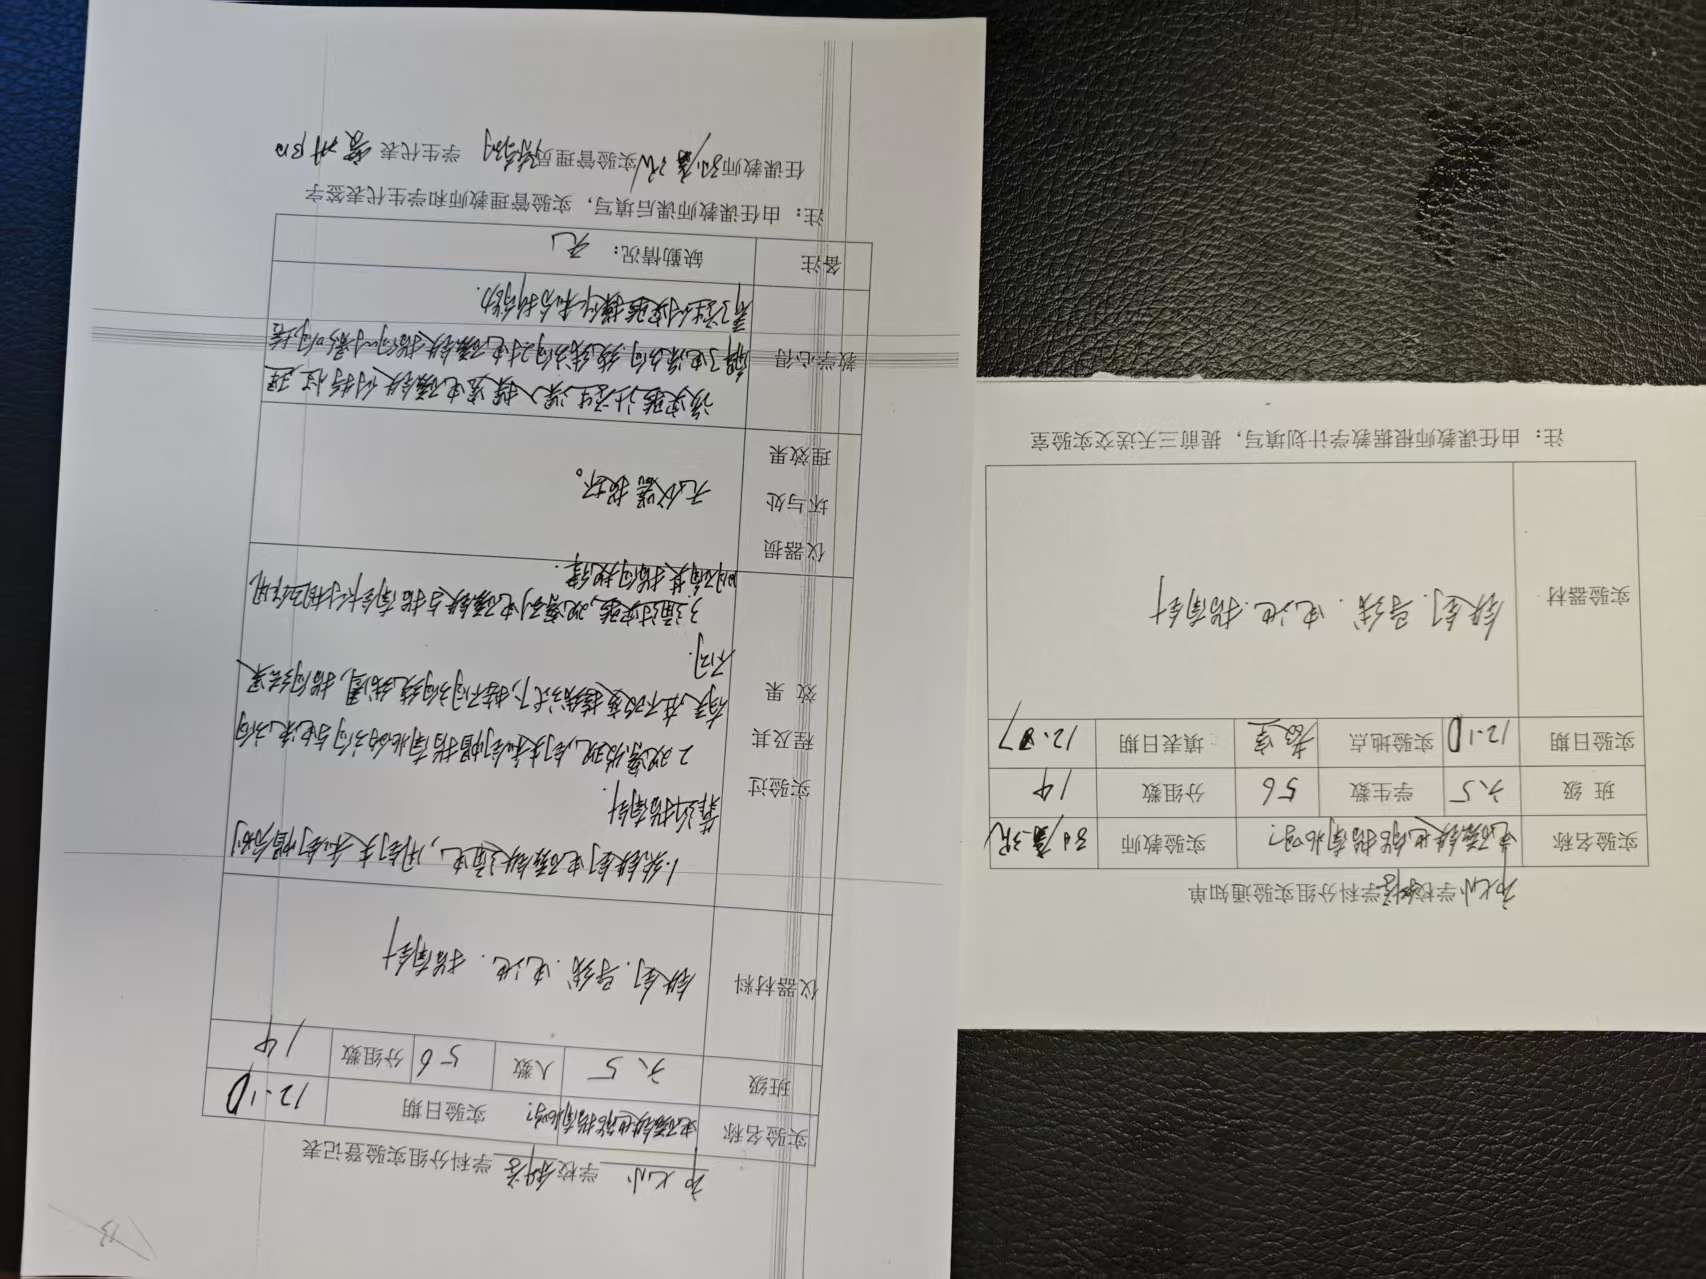 学校科学学科分组实验通知单
实验名称 电磁铁也能指南北吗? 实验教师
班 级 六.5 学生数 56 分组数 14
实验日期 12-10 实验地点 教室 填表日期 12.07
实验器材 铁钉.导线.电池.指南针
注: 由任课教师根据教学计划填写, 提前三天送交实验室
学校科学学科分组实验登记表
实验名称 电磁铁也能指南北吗? 实验日期 12-10
班级 六.5 人数 56 分组数 14
仪器材料 铁钉.导线.电池.指南针
实验过
程及其
效 果
1.给铁钉电磁铁通电,用钉尖和钉帽分别
靠近指南针.
2.观察发现,钉尖和钉帽指南北的方向与电流方向
有关,在不改变接线方式下,按不同方向绕线圈,指向结果
不同.
3.通过实验,观察到电磁铁与指南针的相互作用
明确其指向规律.
仪器损
坏与处
理效果
无仪器损坏。
教学心得
该实验让学生深入探究电磁铁的特性,理
解了电流方向,绕线方向对电磁铁指向的影响,培
养了学生的实验操作和分析能力.
备注 缺勤情况: 无
注: 由任课教师课后填写, 实验管理教师和学生代表签字
任课教师 实验管理员 学生代表
13